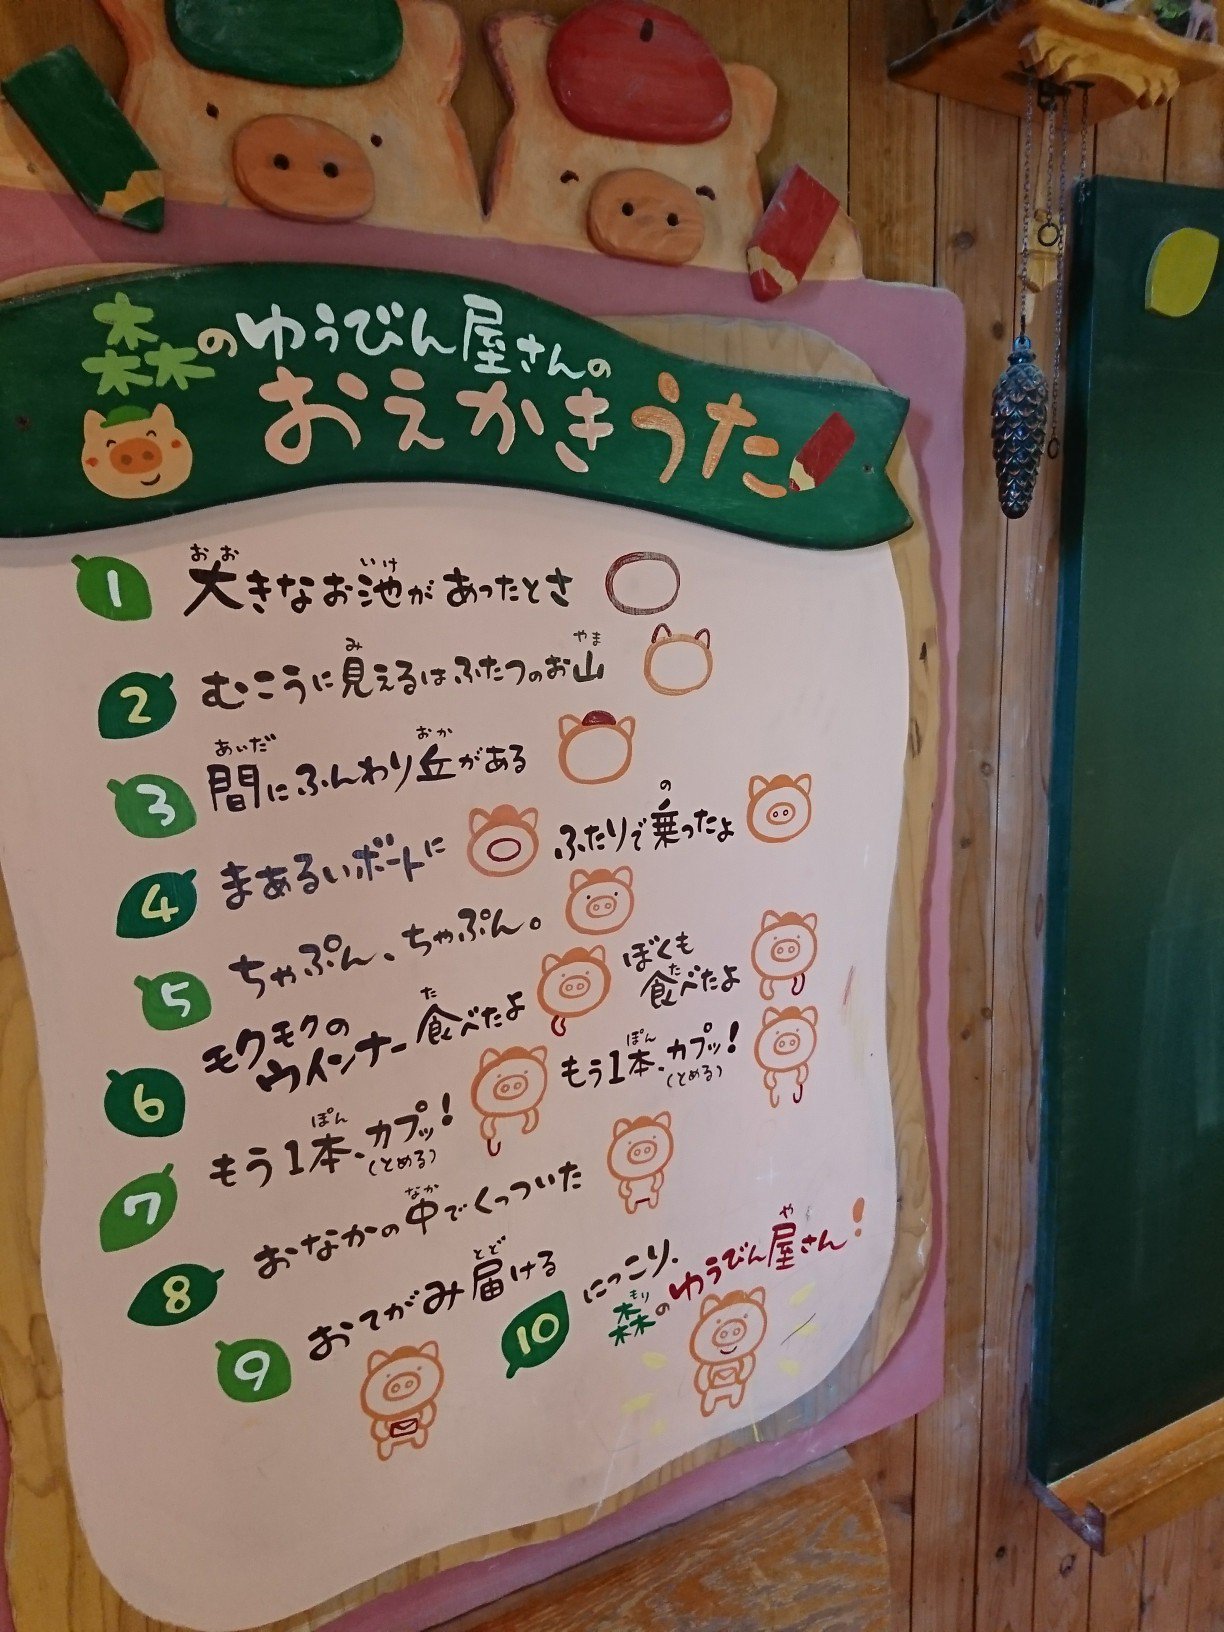 森のゆうびん屋さんの
おえかきうた
おお いけ
1 大きなお池があったとさ
み やま
2 むこうに見えるはふたつのお山
あいだ おか
3 間にふんわり丘がある
の
4 まあるいボートに ふたりで乗ったよ
5 ちゃぷん、ちゃぷん。
6 モクモクの
た
ウインナー食べたよ
ぼくも
た
食べたよ
ぽん
7 もう1本、カプッ!
(とめる)
ぽん
もう1本、カプッ!
(とめる)
なか
8 おなかの中でくっついた
とど
9 おてがみ届ける
10 にっこり、
もり や
森のゆうびん屋さん!